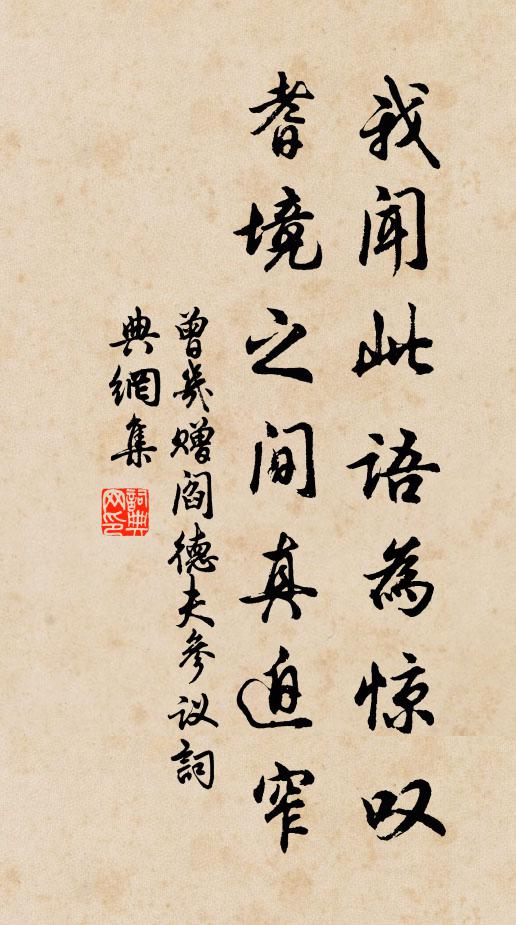 我闻此语为惊叹
耆境之间真迫窄
曾几赠阎德夫参议词
典網集
詞典
网印